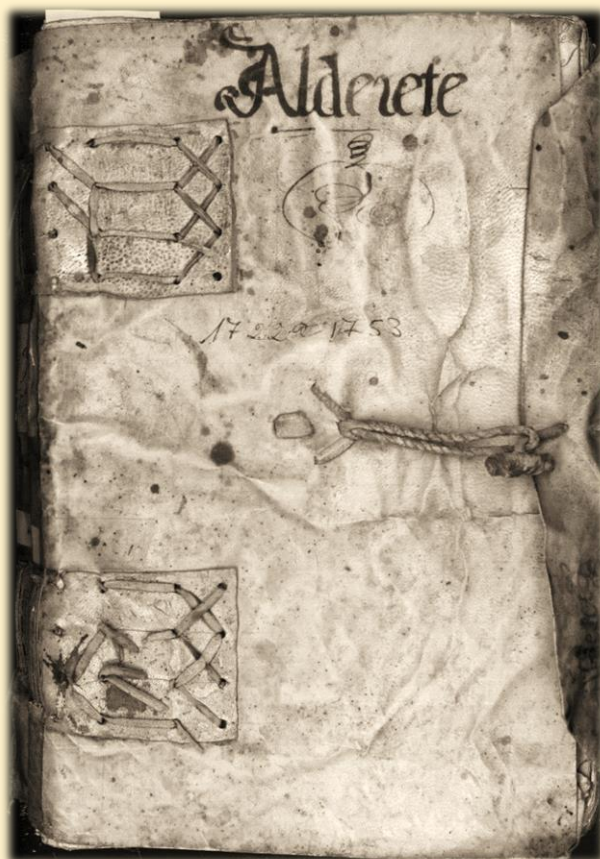 Alderete
1722 a 1753